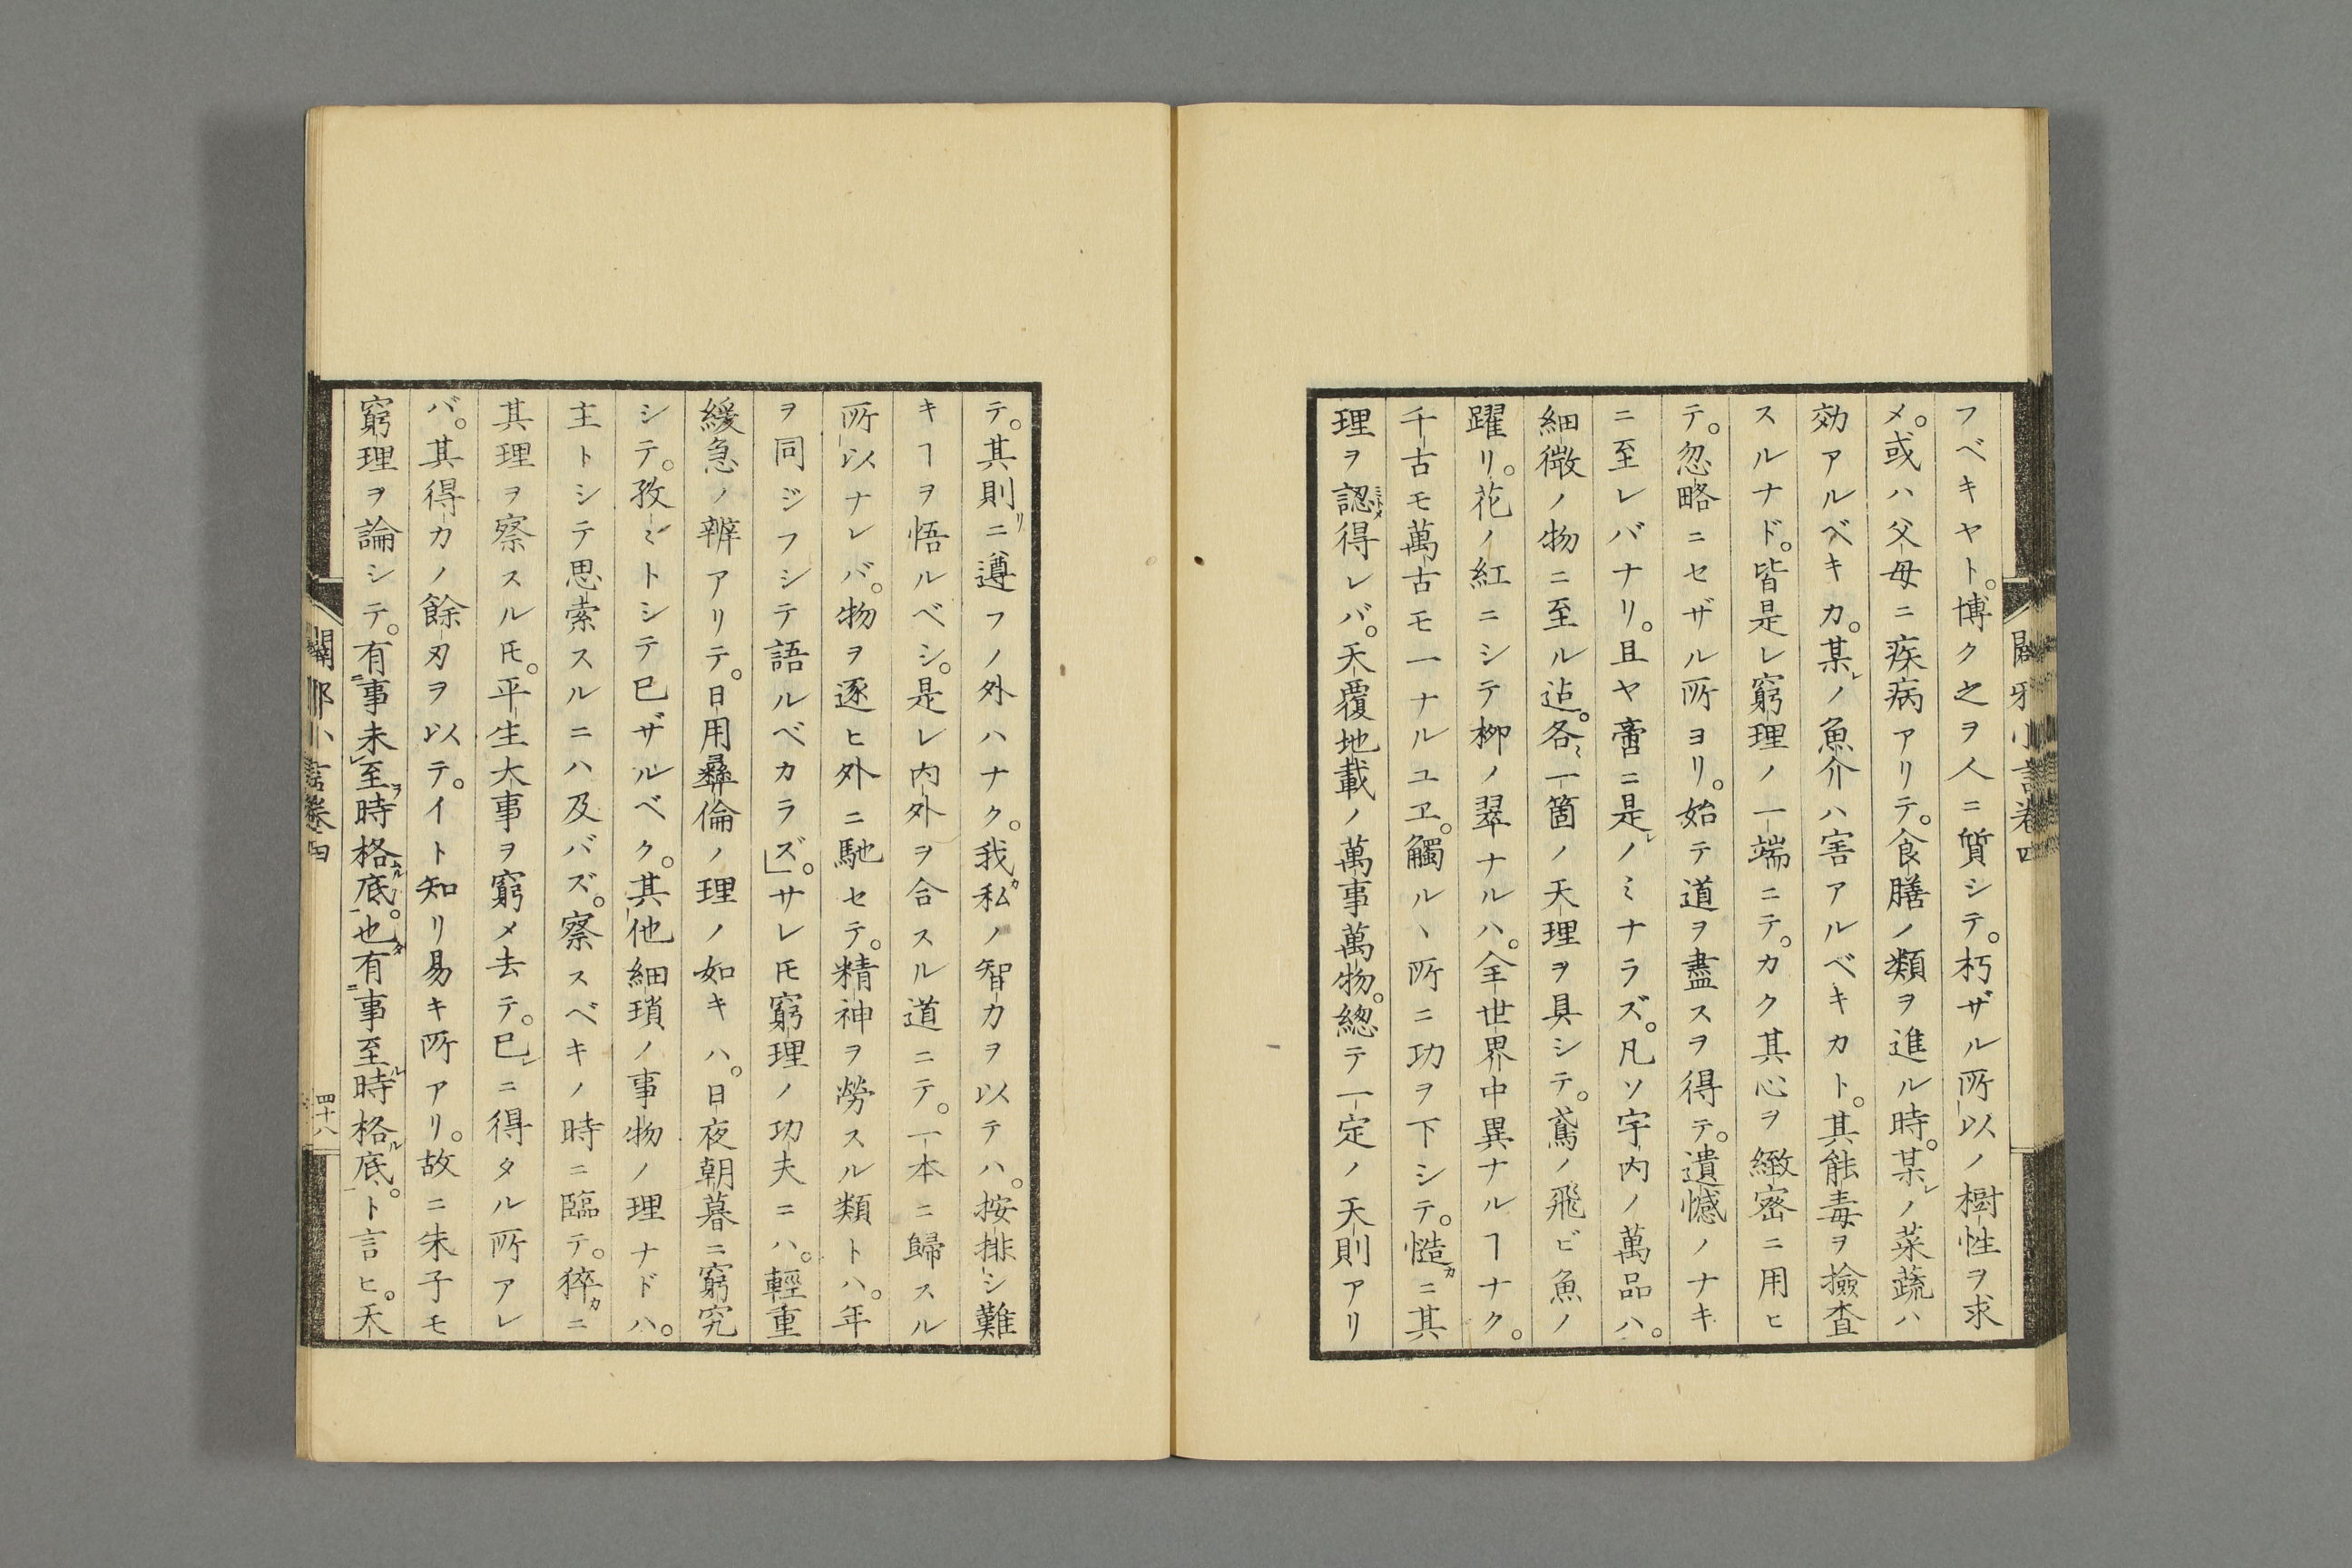 フベキヤト。博ク之ヲ人ニ質シテ。朽ザル所以ノ樹性ヲ求
メ。或ハ父母ニ疾病アリテ。食膳ノ類ヲ進ル時。某レノ菜蔬ハ
効アルベキカ。某レノ魚介ハ害アルベキカト。其能毒ヲ撿査
スルナド。皆是レ窮理ノ一端ニテ。カク其心ヲ緻密ニ用ヒ
テ。忽略ニセザル所ヨリ。始テ道ヲ盡スヲ得テ。遺憾ノナキ
ニ至レバナリ。且ヤ啻ニ是レノミナラズ。凡ソ宇内ノ萬品ハ。
細微ノ物ニ至ル迠。各〻一箇ノ天理ヲ具シテ。鳶ノ飛ビ魚ノ
躍リ。花ノ紅ニシテ柳ノ翠ナルハ。全世界中異ナルヿナク。
千古モ萬古モ一ナルユヱ。觸ルヽ所ニ功ヲ下シテ。慥カニ其
理ヲ認トメ得レバ。天覆地載ノ萬事萬物。総テ一定ノ天則アリ
闢邪小言卷四
テ。其則リニ遵フノ外ハナク。我私カノ智力ヲ以テハ。按排シ難
キヿヲ悟ルベシ。是レ内外ヲ合スル道ニテ。一本ニ歸スル
所以ナレバ。物ヲ逐ヒ外ニ馳セテ。精神ヲ勞スル類トハ。年
ヲ同ジフシテ語ルベカラズ」。サレ𪜈窮理ノ功夫ニハ。輕重
緩急ノ辨アリテ。日用彜倫ノ理ノ如キハ。日夜朝暮ニ窮究
シテ。孜〻トシテ已ザルベク。其他細瑣ノ事物ノ理ナドハ。
主トシテ思索スルニハ及バズ。察スベキノ時ニ臨テ。猝カニ
其理ヲ察スル𪜈。平生大事ヲ窮メ去テ。已レニ得タル所アレ
バ。其得力ノ餘刃ヲ以テ。イト知リ易キ所アリ。故ニ朱子モ
窮理ヲ論シテ。有事未至時格底。也有事至時格底。ト言ヒ。天
闢邪小言卷四
四十八